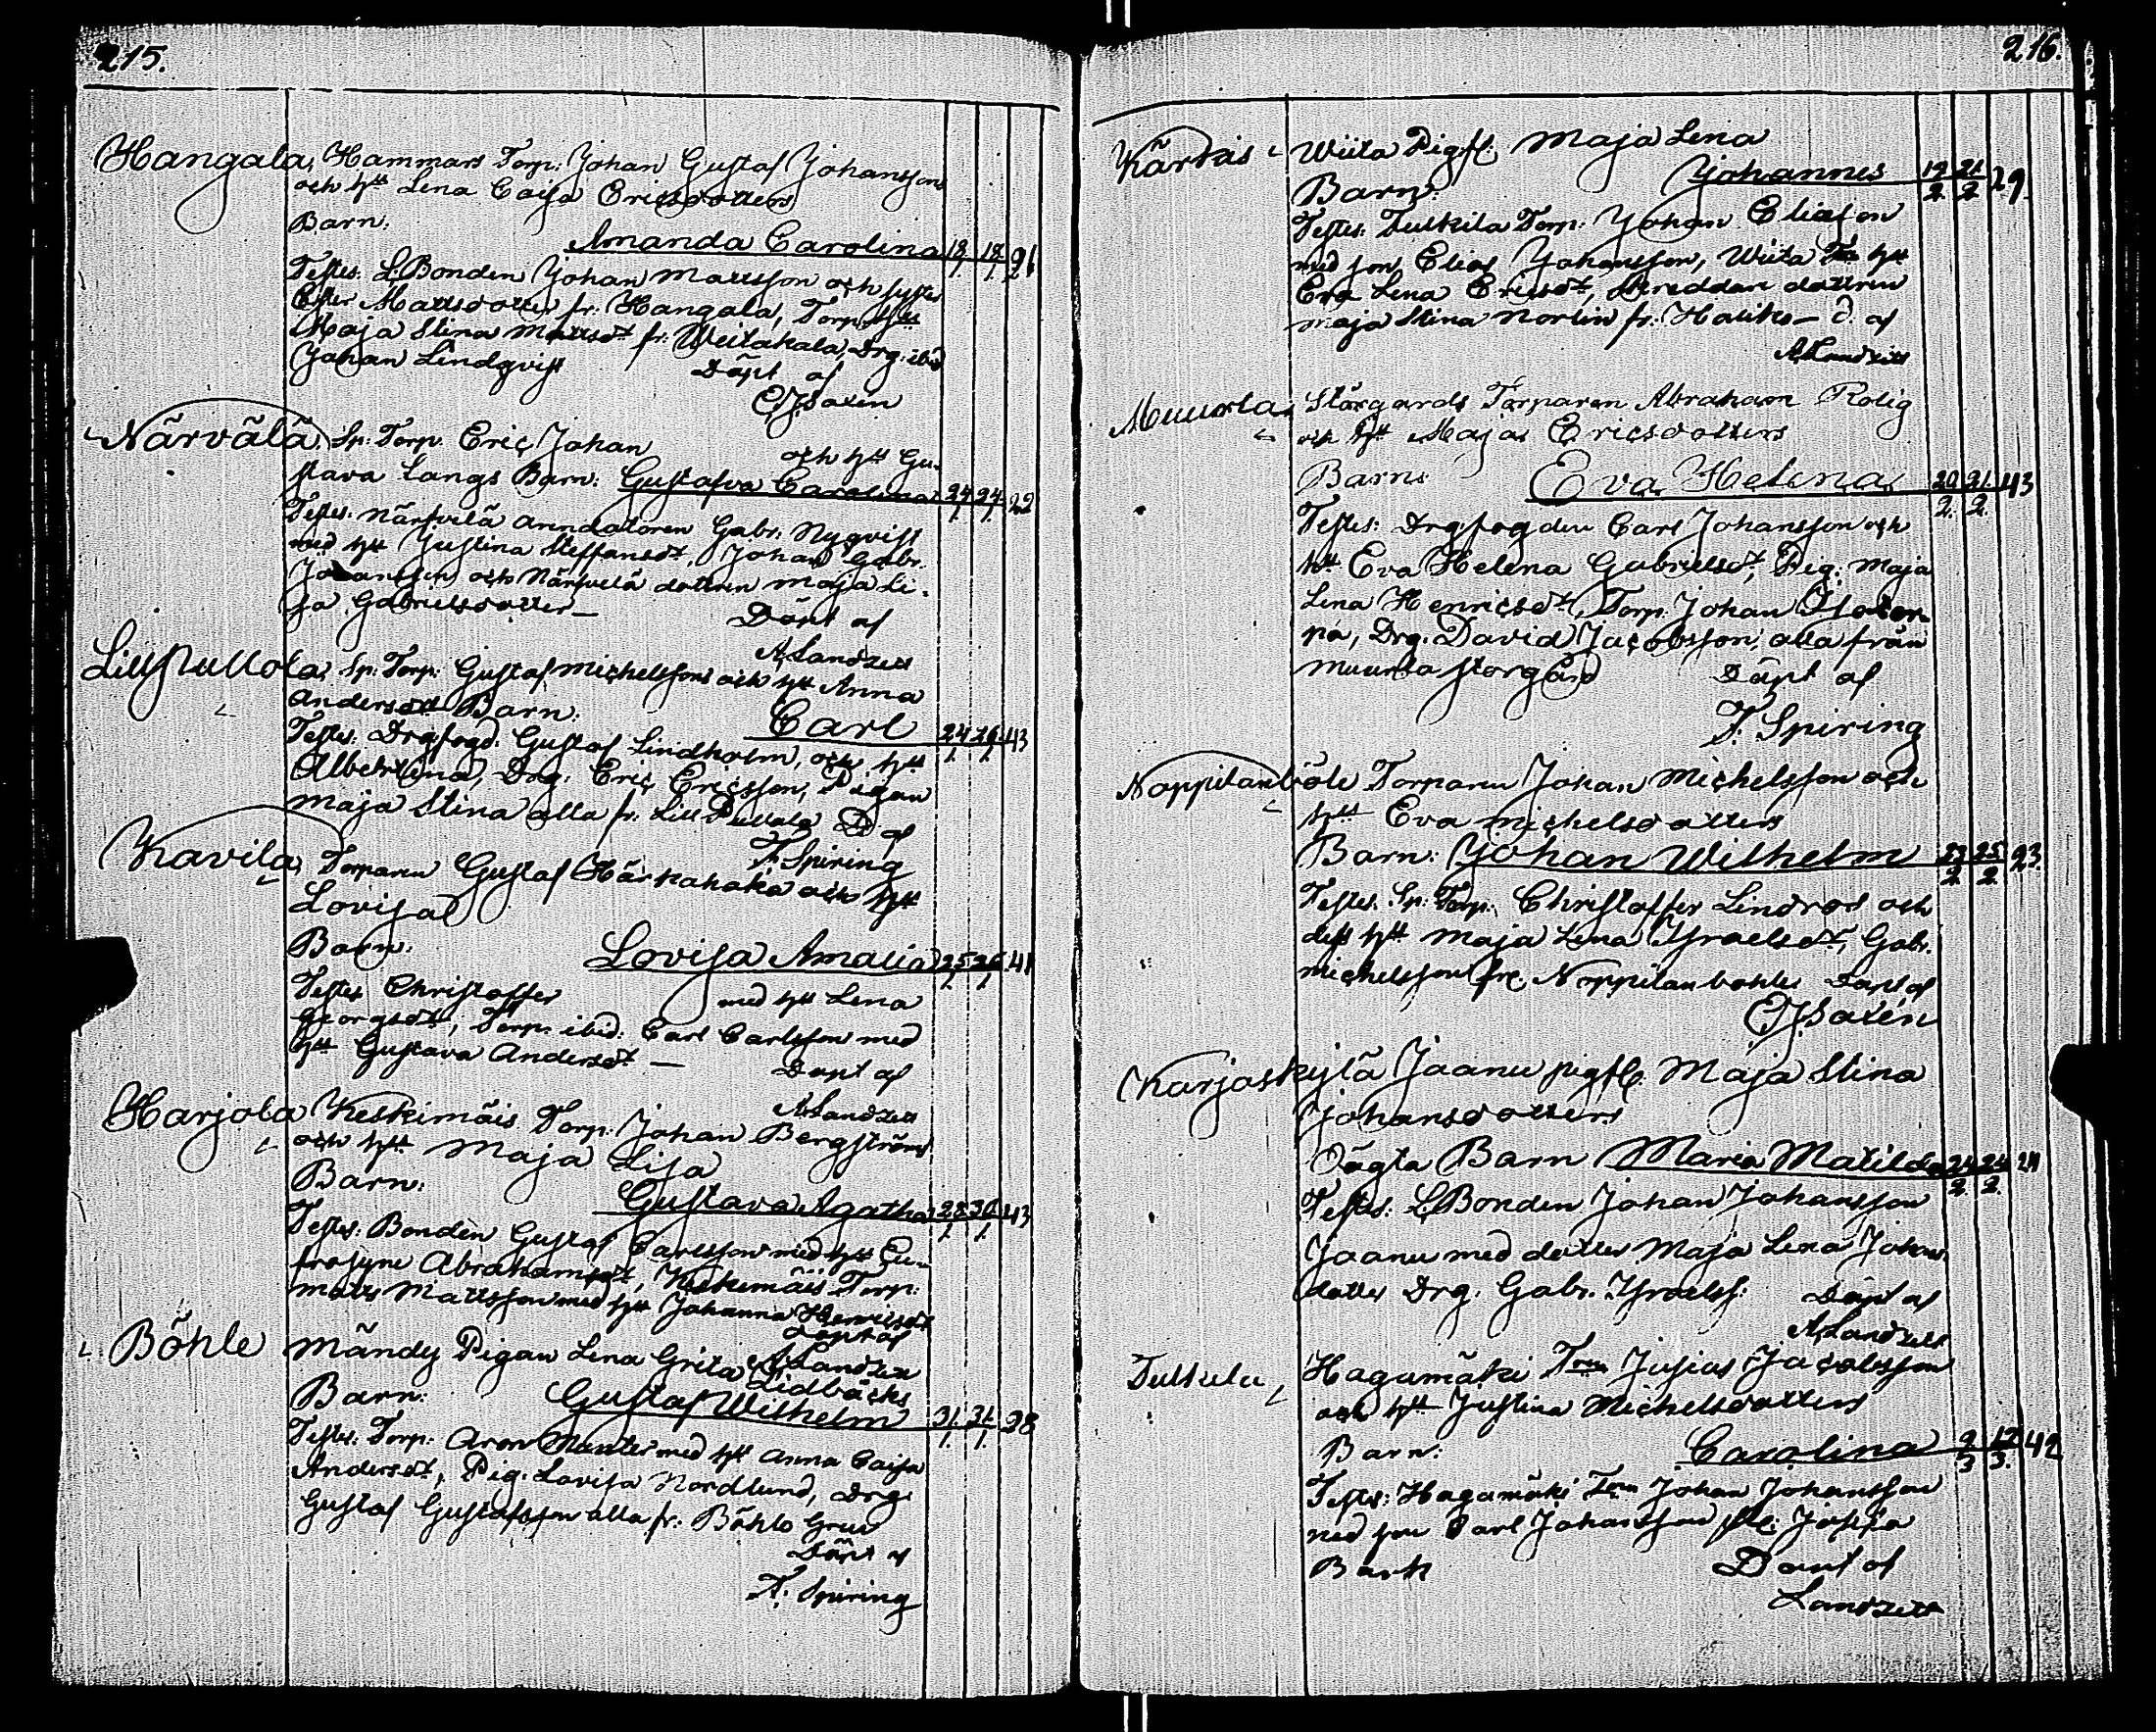 215.
Hangala, Hammars Torp: Johan Gustaf Johanssons
och hu Lena Caisa Ericsdotters
Barn:
Amanda Carolina 18/1. 18/1. 26
Testes: L. Bonden Johan Mattsson och syster
Ester Mattsdotter fr: Hangala, Torp. hu
Maja Stina Mattsdt fr: Weitakala, Drg: ibid
Johan Lindqvist Döpt af
CJ Saxén
Närvälä, Sp: Torp. Eric Johan och hu Gu-
stava Langs Barn: Gustafva Carolina 24/1. 24/1. 22
Testes: Närfvelä arndatoren Gabr: Nyqvist
med hu Justina Steffansdt, Johan Gabr.
Johansson och Närfvelä dottren Maja Li-
sa Gabrielsdotter — Döpt af
A. Landzett
Lillpullola, Sp: Torp: Gustaf Michelssons och hu Anna
Andersdott Barn:
Carl 24/1. 26/1. 43
Testes: Drgfogd. Gustaf Lindholm, och hu
Albertina, Drg. Eric Ericsson, Pigan
Maja Stina alla fr. Lill Pullala D. af
F. Spiring
Kavila, Torparen Gustaf Härkahaka och hu
Lovisa
Barn:
Lovisa Amalia 25/1. 26/1. 41
Testes Christoffer med hu Lena
Georgsdt, Torp. ibid. Carl Carlsson med
hu Gustava Andersdt — Döpt af
A. Landzett
Harjola Keskimäis Torp: Johan Bergströms
och hu Maja Lisa
Barn:
Gustava Agatha 28/1. 30/1. 43
Testes: Bonden Gustaf Carlsson med hu Eu-
frosyne Abrahamsdt, Keskimäis Torp:
Matts Mattsson med hu Johanna Henricsdt
Döpt af
A. Landzett
Böhle Mändy Pigan Lena Greta Lidbäcks
Barn:
Gustaf Wilhelm 31/1. 31/1. 28
Testes: Torp: Aron Manter med hu Anna Caisa
Andersdt, Pig: Lovisa Nordlund, Drg:
Gustaf Gustafsson alla fr: Böhle
Döpt af
F. Spiring
216.
Kärkäis Wiita Pigfl: Maja Lena
Barn: Johannes 19/2. 21/2. 29.
Testes: Tulkila Torp: Johan Eliasson
med son Elias Johansson, Wiita hu
Eva Lena Ericsdt, skreddare dottren
Maja Stina Norlin fr: Haliko — d. af
A. Landzett
Muurla, Storgårds Torparen Abraham Rolig
och hu Maja Ericsdotters
Barn: Eva Helena 20/2. 21/2. 43
Testes: Drgfogden Carl Johansson och
hu Eva Helena Gabrielsdt, Pig: Maja
Lena Henricsdt, Torp. Johan
Drg. David Jacobsson, alla från
Muurla storgård Döpt af
F. Spiring
Noppilanböle Torparen Johan Michelsson och
hu Eva Michelsdotters
Barn: Johan Wilhelm 23/2. 25/2. 23.
Testes: Sp: Torp: Christoffer Lindros och
dess hu Maja Lena Israelsdt, Gabr.
Michelsson fr. Noppilanbohle Döpt af
CJ Saxén
Karjaskylä Jaanu pigfl. Maja Stina
Johansdotters
Oägta Barn Maria Matilda 24/2. 24/2. 24
Testes: L. Bonden Johan Johansson
Jaanu med dotter Maja Lena Johans
dotter Drg. Gabr. Israelss: Döpt af
A. Landzett
Tulkila, Hagamäki Torp Josias Jacobsson
och hu Justina Michelsdotters
Barn: Carolina 9/3 12/3. 42
Testes: Hagamäki Torp Johan Johansson
med son Carl Johansson
Döpt af
Landzett